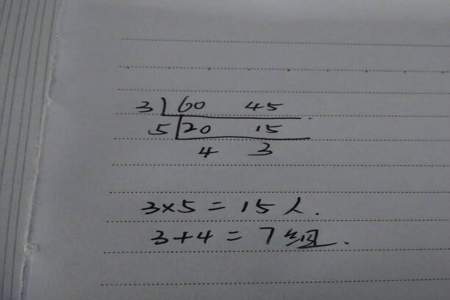 3 60 45
5 20 15
4 3
3×5=15人.
3+4=7组.